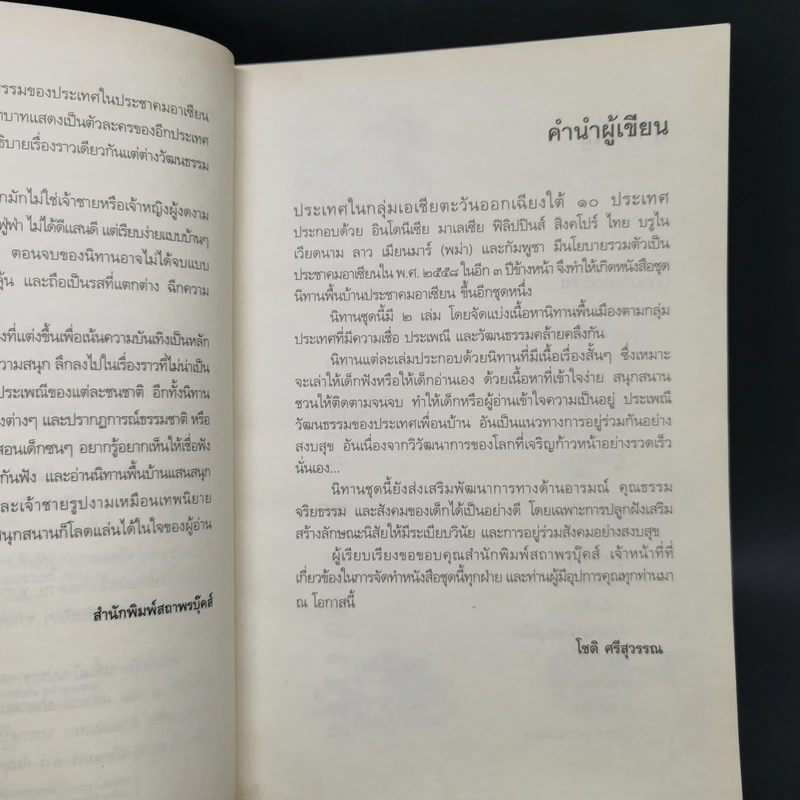 ธรรมของประเทศในประชาคมอาเซียน
บาทแสดงเป็นตัวละครของอีกประเทศ
ธิบายเรื่องราวเดียวกันแต่ต่างวัฒนธรรม
กมักไม่ใช่เจ้าชายหรือเจ้าหญิงผู้งดงาม
ฟู่ฟ่า ไม่ได้ดีแสนดี แต่เรียบง่ายแบบบ้านๆ
ตอนจบของนิทานอาจไม่ได้จบแบบ
และถือเป็นรสที่แตกต่าง ฉีกความ
งที่แต่งขึ้นเพื่อเน้นความบันเทิงเป็นหลัก
วามสนุก ลึกลงไปในเรื่องราวที่ไม่น่าเป็น
ประเพณีของแต่ละชนชาติ อีกทั้งนิทาน
งต่างๆ และปรากฏการณ์ธรรมชาติ หรือ
สอนเด็กซนๆ อยากรู้อยากเห็นให้เชื่อฟัง
กันฟัง และอ่านนิทานพื้นบ้านแสนสนุก
ละเจ้าชายรูปงามเหมือนเทพนิยาย
สนุกสนานก็โลดแล่นได้ในใจของผู้อ่าน
สำนักพิมพ์สถาพรบุ๊คส์
คำนำผู้เขียน
ประเทศในกลุ่มเอเชียตะวันออกเฉียงใต้ ๑๐ ประเทศ
ประกอบด้วย อินโดนีเซีย มาเลเซีย ฟิลิปปินส์ สิงคโปร์ ไทย บรูไน
เวียดนาม ลาว เมียนมาร์ (พม่า) และกัมพูชา มีนโยบายรวมตัวเป็น
ประชาคมอาเซียนใน พ.ศ. ๒๕๕๘ ในอีก ๓ ปีข้างหน้า จึงทำให้เกิดหนังสือชุด
นิทานพื้นบ้านประชาคมอาเซียน ขึ้นอีกชุดหนึ่ง
นิทานชุดนี้มี ๒ เล่ม โดยจัดแบ่งเนื้อหานิทานพื้นเมืองตามกลุ่ม
ประเทศที่มีความเชื่อ ประเพณี และวัฒนธรรมคล้ายคลึงกัน
นิทานแต่ละเล่มประกอบด้วยนิทานที่มีเนื้อเรื่องสั้นๆ ซึ่งเหมาะ
จะเล่าให้เด็กฟังหรือให้เด็กอ่านเอง ด้วยเนื้อหาที่เข้าใจง่าย สนุกสนาน
ชวนให้ติดตามจนจบ ทำให้เด็กหรือผู้อ่านเข้าใจความเป็นอยู่ ประเพณี
วัฒนธรรมของประเทศเพื่อนบ้าน อันเป็นแนวทางการอยู่ร่วมกันอย่าง
สงบสุข อันเนื่องจากวิวัฒนาการของโลกที่เจริญก้าวหน้าอย่างรวดเร็ว
นั่นเอง...
นิทานชุดนี้ยังส่งเสริมพัฒนาการทางด้านอารมณ์ คุณธรรม
จริยธรรม และสังคมของเด็กได้เป็นอย่างดี โดยเฉพาะการปลูกฝังเสริม
สร้างลักษณะนิสัยให้มีระเบียบวินัย และการอยู่ร่วมสังคมอย่างสงบสุข
ผู้เรียบเรียงขอขอบคุณสำนักพิมพ์สถาพรบุ๊คส์ เจ้าหน้าที่ที่
เกี่ยวข้องในการจัดทำหนังสือชุดนี้ทุกฝ่าย และท่านผู้มีอุปการคุณทุกท่านมา
ณ โอกาสนี้
โชติ ศรีสุวรรณ